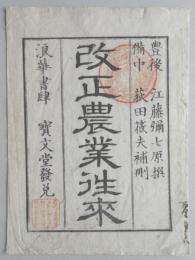 豊後 江藤彌七原撰
備中 荻田筱夫補刪
改正農業往來
浪華書肆 寳文堂發兌